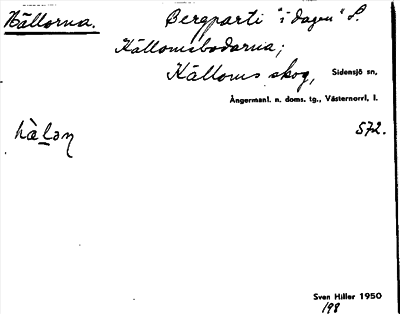 Hällorna. Bergparti "i dagen" S.
Hällomsbodarna;
Hälloms skog, Sidensjö sn,
Ångermanl. n. doms. tg., Västernorrl. l.
hà̀lən 572.
Sven Hiller 1950
198